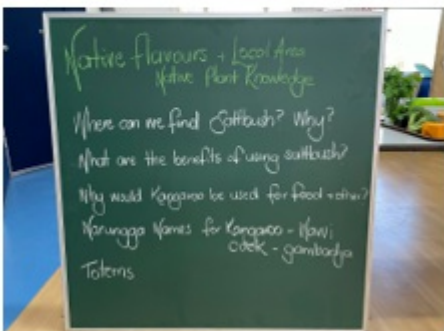 Native Flavours + Local Area
Native Plant Knowledge
Where can we find Saltbush? Why?
What are the benefits of using saltbush?
Why would Kangaroo be used for food + other?
Narungga Names for Kangaroo - Nawi
- gambadya
Totems